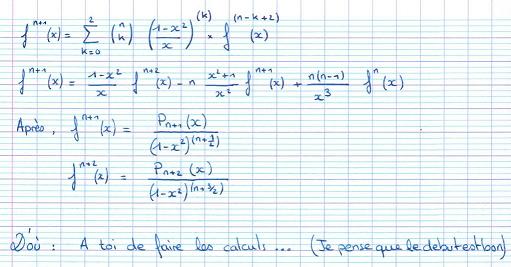 f^{n+1}(x) = \sum_{k=0}^{2} \binom{n}{k} \left(\frac{1-x^2}{x}\right)^{(k)} \times f^{(n-k+2)}(x)
f^{n+1}(x) = \frac{1-x^2}{x} f^{n+2}(x) - n \frac{x^2+1}{x^2} f^{n+1}(x) + \frac{n(n-1)}{x^3} f^n(x)
Après, f^{n+1}(x) = \frac{P_{n+1}(x)}{(1-x^2)^{(n+\frac{1}{2})}}
f^{n+2}(x) = \frac{P_{n+2}(x)}{(1-x^2)^{(n+3/2)}}
D'où : A toi de faire les calculs ... (Je pense que le debut est bon)